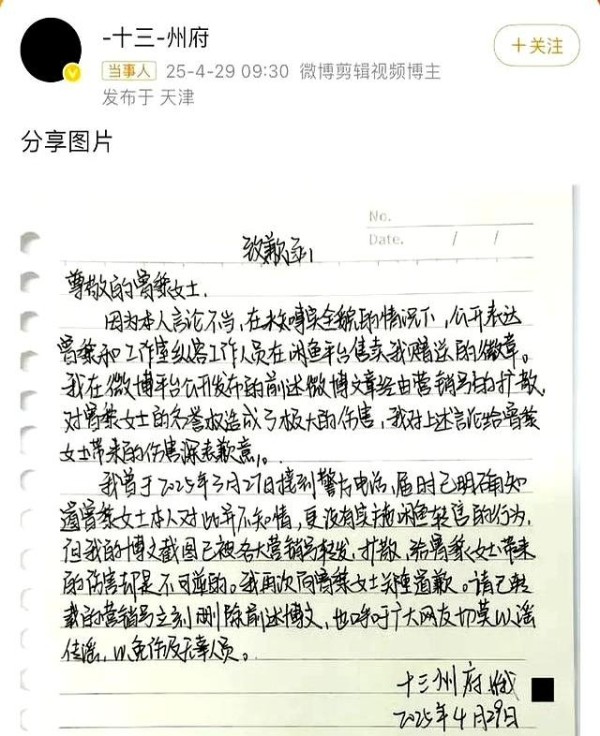 -十三-州府
当事人 25-4-29 09:30 微博剪辑视频博主
发布于 天津
+关注
分享图片
No.
Date. / /
致歉函
尊敬的曾黎女士.
因为本人言论不当,在未知事实全貌的情况下,公开表达
曾黎和工作室纵容工作人员在闲鱼平台售卖我赠送的徽章。
我在微博平台公开发布的前述微博文章经由营销号的扩散,
对曾黎女士的名誉权造成了极大的伤害,我对上述言论给曾黎
女士带来的伤害深表歉意。
我曾于2025年3月27日接到警方电话,届时已明确知
道曾黎女士本人对此并不知情,更没有实施闲鱼转售的行为,
但我的博文截图已被各大营销号转发,扩散,给曾黎女士带来
的伤害却是不可逆的。我再次向曾黎女士关键道歉。请已转
载的营销号立刻删除前述博文,也呼吁广大网友切莫以谣
传谣,以免伤及无辜人员。
十三州府
2025年4月29日